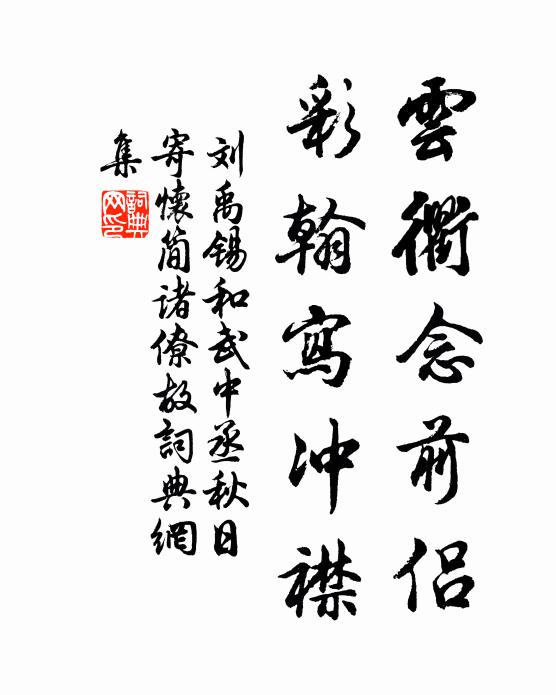 雲衢念前侣
彩翰寫冲襟
刘禹锡和武中丞秋日
寄懷简诸僚故詞典網
集
詞典
网印